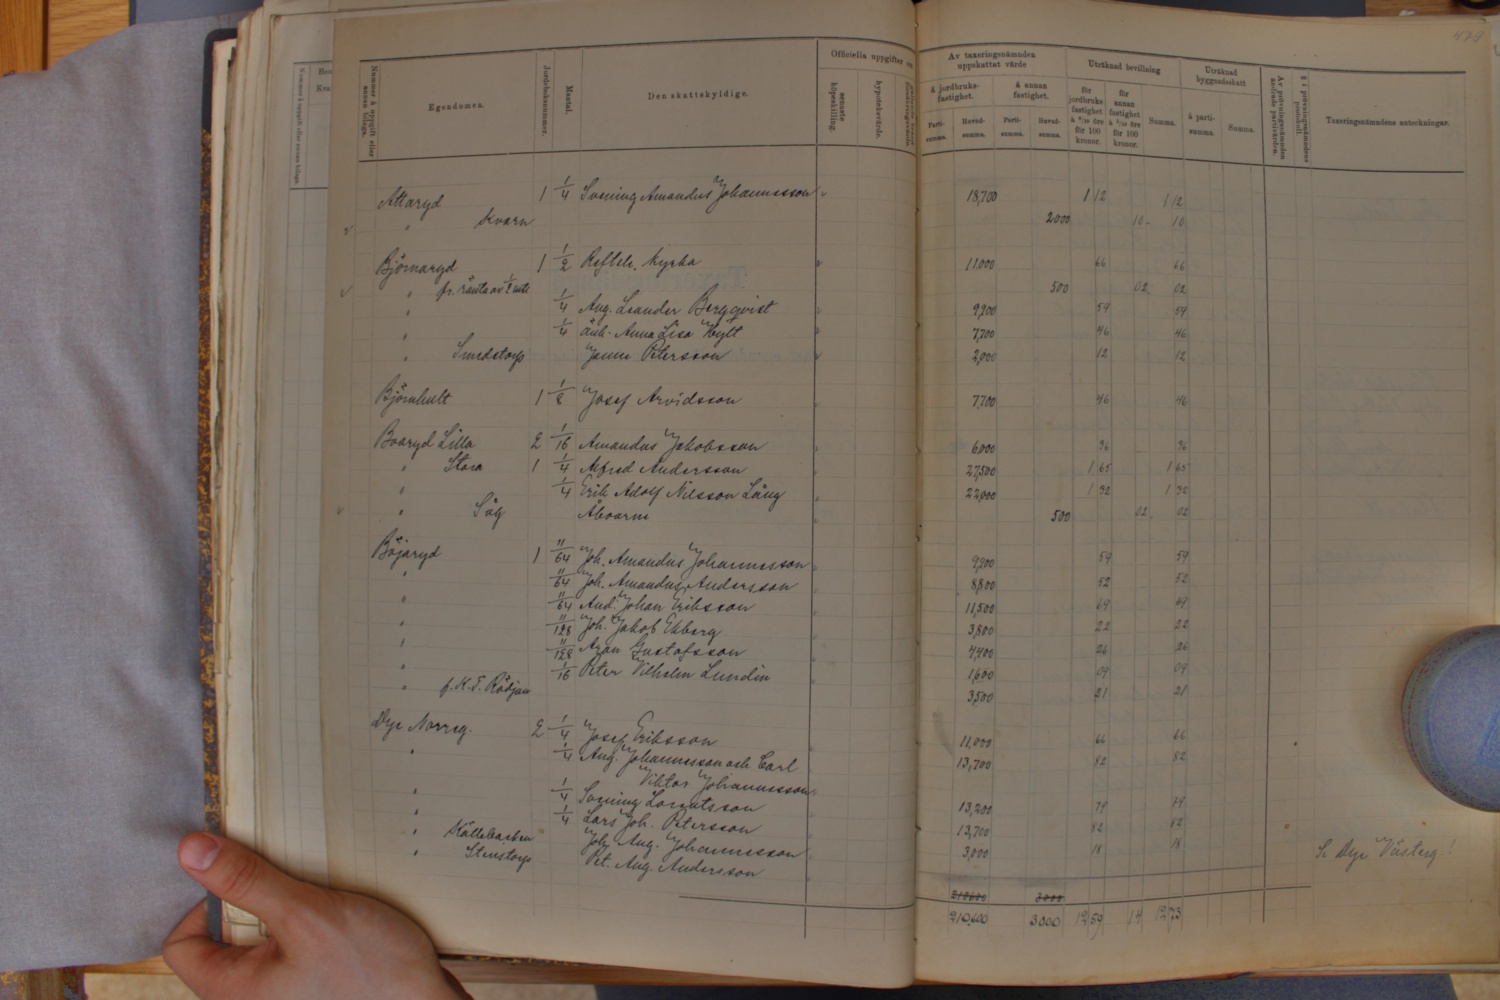 479
Nummer å uppgift eller annan bilaga.
Egendomen.
Jordeboksnummer.
Mantal.
Den skattskyldige.
Officiella uppgifter om
senaste köpeskilling.
hypoteksvärde.
Av taxeringsnämnden uppskattat värde
Å jordbruksfastighet.
Å annan fastighet.
Parti-summa.
Huvud-summa.
Parti-summa.
Huvud-summa.
Uträknad bevillning
för jordbruksfastighet à 6/10 öre för 100 kronor.
för annan fastighet à 5/10 öre för 100 kronor.
Summa.
Uträknad byggnadsskatt
à parti-summa.
Summa.
Av prövningsnämnden ändrade partivärden.
§ i prövningsnämndens protokoll.
Taxeringsnämndens anteckningar.
Attaryd 1 1/4 Svening Amandus Johannesson 18,700 1 12 1 12
" kvarn 2000 10 - 10
Björnaryd 1 1/2 Reftele kyrka 11,000 66 66
" fr. ränta av 1/2 mtl 500 02 02
" 1/4 Aug. Leander Bergqvist 9,900 59 59
" 1/4 änk. Anna Lisa Hytt 7,700 46 46
" Smedstorp Janne Petersson 2,000 12 12
Björnhult 1 1/8 Josef Arvidsson 7,700 46 46
Boaryd Lilla 2 1/16 Amandus Jakobsson 6,000 36 36
" Stora 1 1/4 Alfred Andersson 27,500 1 65 1 65
" 1/4 Erik Adolf Nilsson Lång 22,000 1 32 1 32
" Såg Åboarne 500 02 02
Böjaryd 1 11/64 Joh. Amandus Johannesson 9,900 59 59
" 11/64 Joh. Amandus Andersson 8,800 52 52
" 11/64 And. Johan Eriksson 11,500 69 69
" 11/128 Joh. Jakob Ekberg 3,800 22 22
" 11/128 Aron Gustafsson 4,400 26 26
" 1/16 Peter Vilhelm Lundin 1,600 09 09
" f.K.S. Rödjan 3,500 21 21
Dye Norreg. 2 1/4 Josef Eriksson 11,000 66 66
" 1/4 Aug. Johannesson och Carl 13,700 82 82
Viktor Johannesson
" 1/4 Svening Lorentsson 13,200 79 79
" 1/4 Lars Joh. Petersson 13,700 82 82
" Källebacken Joh. Aug. Johannesson 3,000 18 18
" Stenstorp Pet. Aug. Andersson
Se Dye Västerg!
3000
210,600 3000 12 59 14 12 73